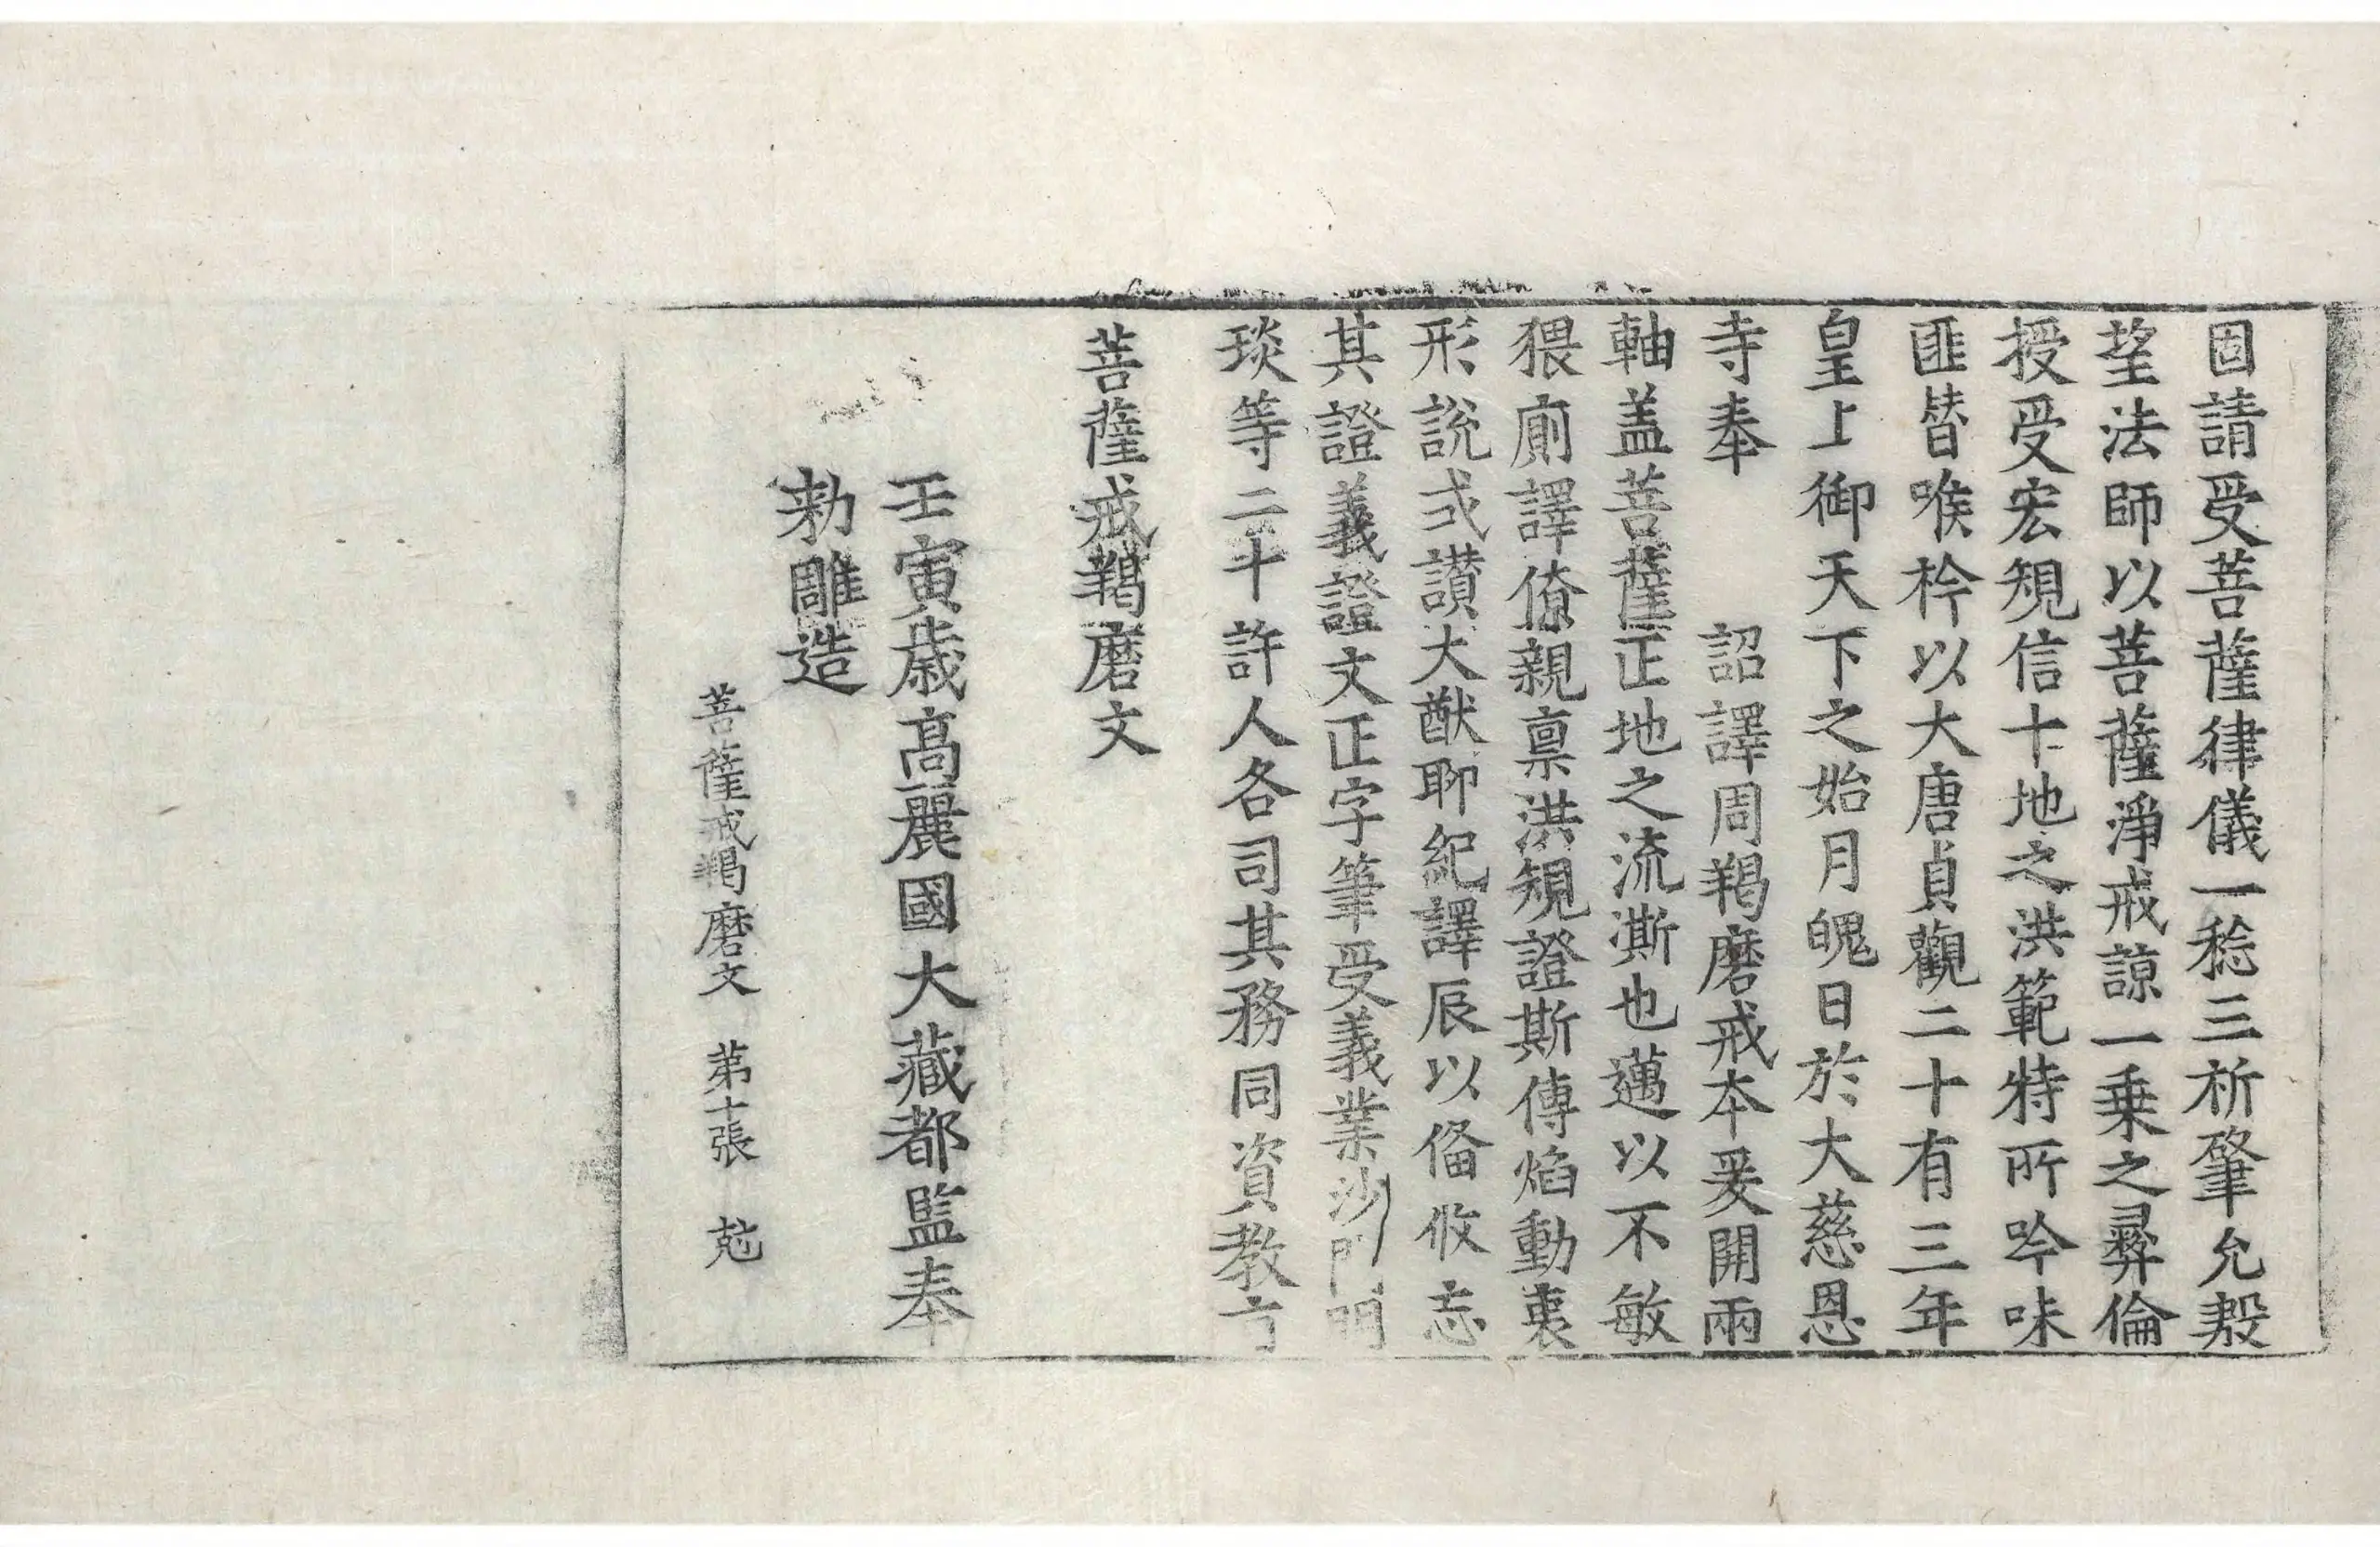 因請受菩薩律儀一稔三祈肇允敭
望法師以菩薩淨戒諒一乗之彛倫
授受宏䂓信十地之洪範特所吟味
匪替喉衿以大唐貞觀二十有三年
皇上御天下之始月魄日於大慈恩
寺奉 詔譯周羯磨戒夲爰開兩
軸盖菩薩正地之流澌也邁以不敏
猥廁譯僚親稟洪䂓證斯傳焰動衷
形說式讃大猷聊紀譯辰以俻攸忘
其證義證文正字筆受義業沙門明
琰等二十許人各司其務同資教亏
菩薩戒羯磨文
壬寅歲高麗國大藏都監奉
勑雕造
菩薩戒羯磨文 苐十張